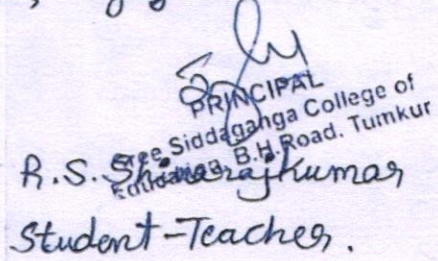 PRINCIPAL
Sree Siddaganga College of
Education, B.H.Road. Tumkur
R.S. Shivarajkumar
Student-Teacher.